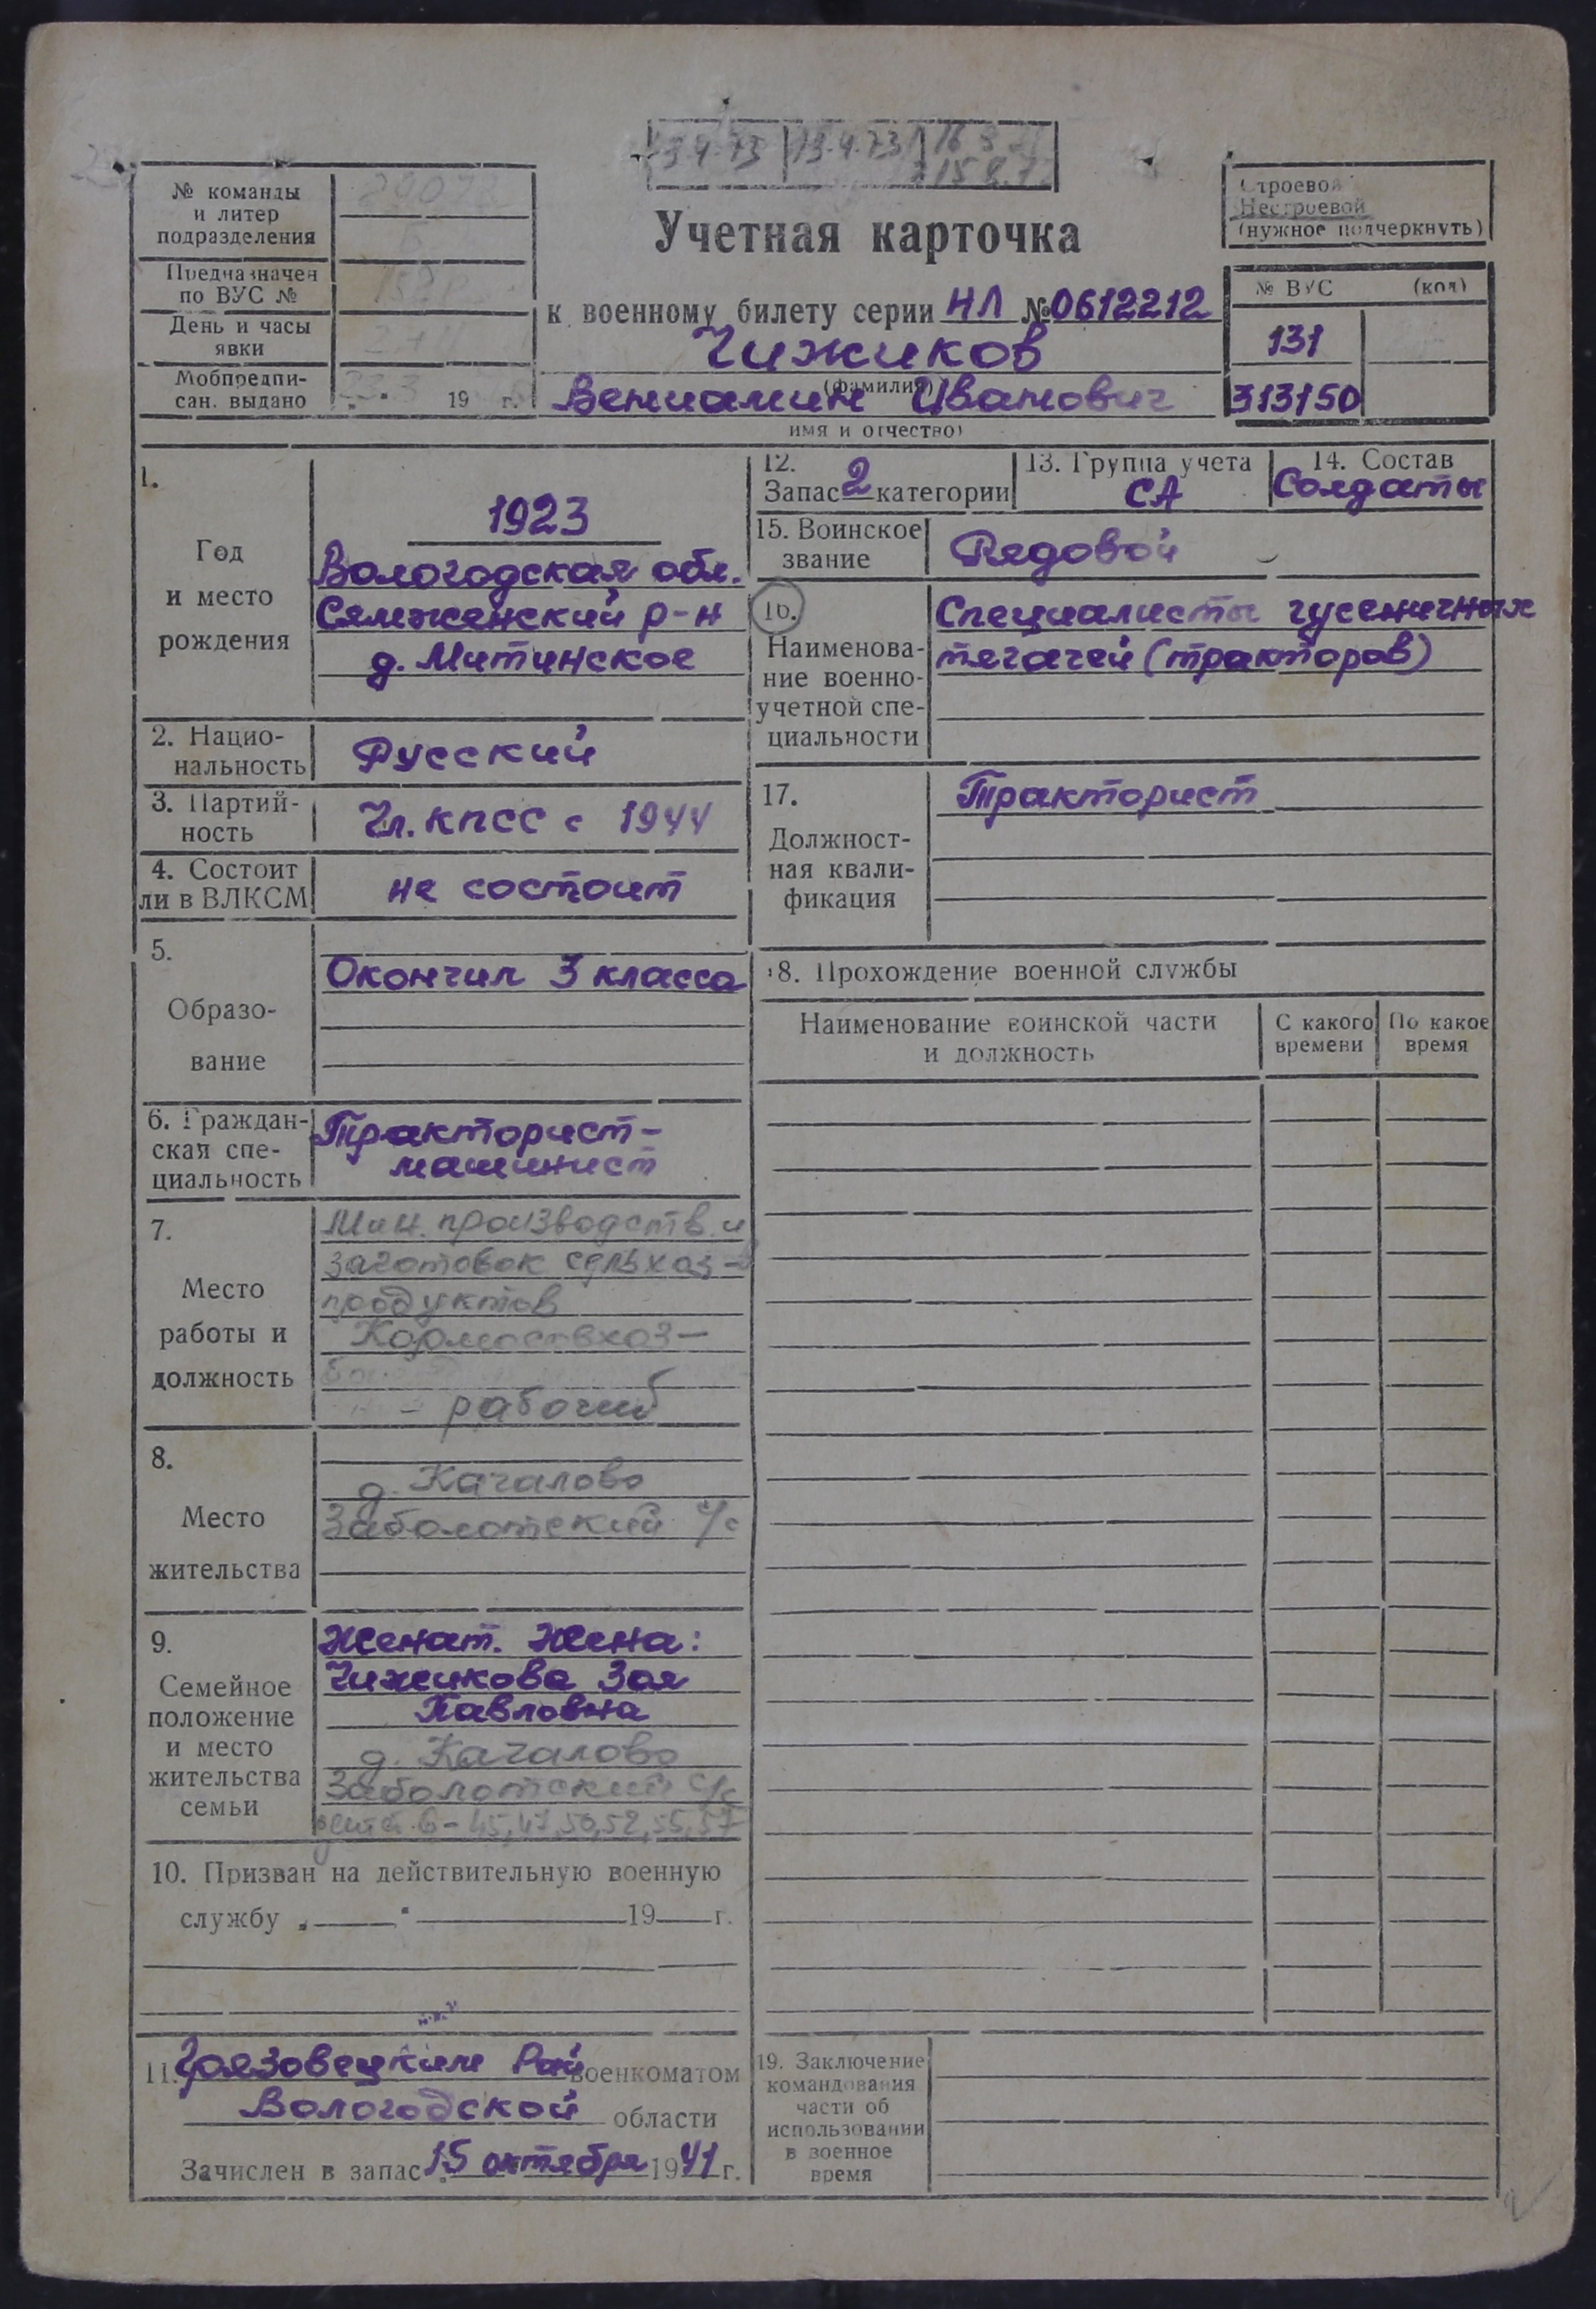 13.4.73 13.4.73 16
15
№ команды
и литер
подразделения
Предназначен
по ВУС №
День и часы
явки
Мобпредпи-
сан. выдано
19 г.
Учетная карточка
к военному билету серии НЛ № 0612212
Чижиков
(фамилия)
Вениамин Иванович
имя и отчество)
Строевой
Нестроевой
(нужное подчеркнуть)
№ ВУС (код)
131
313150
1.
Год
и место
рождения
1923
Вологодская обл.
Сямженский р-н
д. Митинское
2. Нацио-
нальность
Русский
3. Партий-
ность
Чл. КПСС с 1944
4. Состоит
ли в ВЛКСМ
не состоит
5.
Образо-
вание
Окончил 3 класса
6. Граждан-
ская спе-
циальность
Тракторист-
машинист
7.
Место
работы и
должность
Мин. производств. и
заготовок сельхоз-
продуктов
Кормосовхоз-
- рабочий
8.
Место
жительства
д. Качалово
Заболотский с/с
9.
Семейное
положение
и место
жительства
семьи
Женат. Жена:
Чижикова Зоя
Павловна
д. Качалово
Заболотский с/с
дети 6 - 45, 47, 50, 52, 55, 57
10. Призван на действительную военную
службу „ " 19 г.
11. Грязовецким Рай военкоматом
Вологодской области
Зачислен в запас 15 октября 1941 г.
12.
Запас 2 категории
13. Группа учета
СА
14. Состав
Солдаты
15. Воинское
звание
Рядовой
16.
Наименова-
ние военно-
учетной спе-
циальности
Специалисты гусеничных
тягачей (тракторов)
17.
Должност-
ная квали-
фикация
Тракторист
18. Прохождение военной службы
Наименование воинской части
и должность
С какого
времени
По какое
время
19. Заключение
командования
части об
использовании
в военное
время